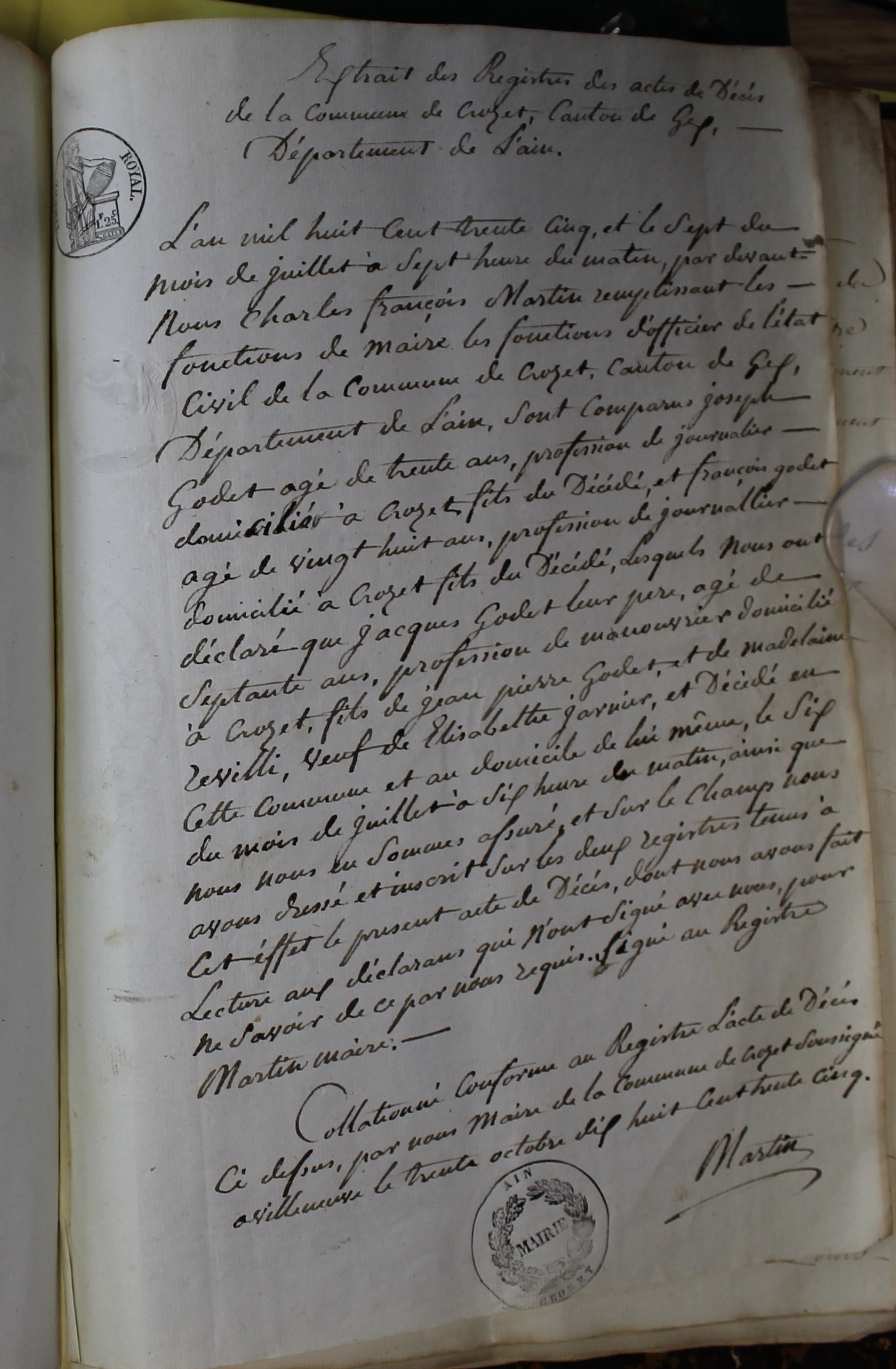 Extrait des Registres des actes de Décès
de la Commune de Crozet, Canton de Gex, —
Département de L'ain.
ROYAL.
1.25
L'an mil huit Cent trente Cinq, et le Sept du
mois de juillet à Sept heure du matin, par devant=
Nous Charles françois Martin remplissant les —
fonctions de maire les fonctions d'officier de l'état
Civil de la Commune de Crozet, Canton de Gex,
Département de L'ain, Sont Comparus joseph
Godet agé de trente ans, profession de journalier —
domicilié à Crozet, fils du Décédé, et françois godet
agé de vingt huit ans, profession de journallier —
domicilié à Crozet fils du Décédé, Lesquels Nous ont
déclaré que jacques Godet leur pere, agé de
Septante ans, profession de manouvrier domicilié
à Crozet, fils de jean pierre Godet, et de madelaine
revilli, veuf de Elisabethe jarnier, et Décédé en
Cette Commune et au domicile de lui même, le Six
du mois de juillet à Six heure du matin, ainsi que
nous nous en Sommes assuré, et Sur le Champs nous
avons dressé et inscrit Sur les deux registres tenus à
Cet éffet le présent acte de Décès, dont nous avons fait
Lecture aux déclarans qui N'ont Signé avec nous, pour
ne Savoir de ce par nous requis. Signé au Registre
Martin maire. —
Collationné Conforme au Registre L'acte de Décès
Ci dessus, par nous Maire de la Commune de Crozet Soussigné
a villeneuve le trente octobre dix huit Cent trente Cinq.
Martin
AIN
MAIRIE
DE
CROZET